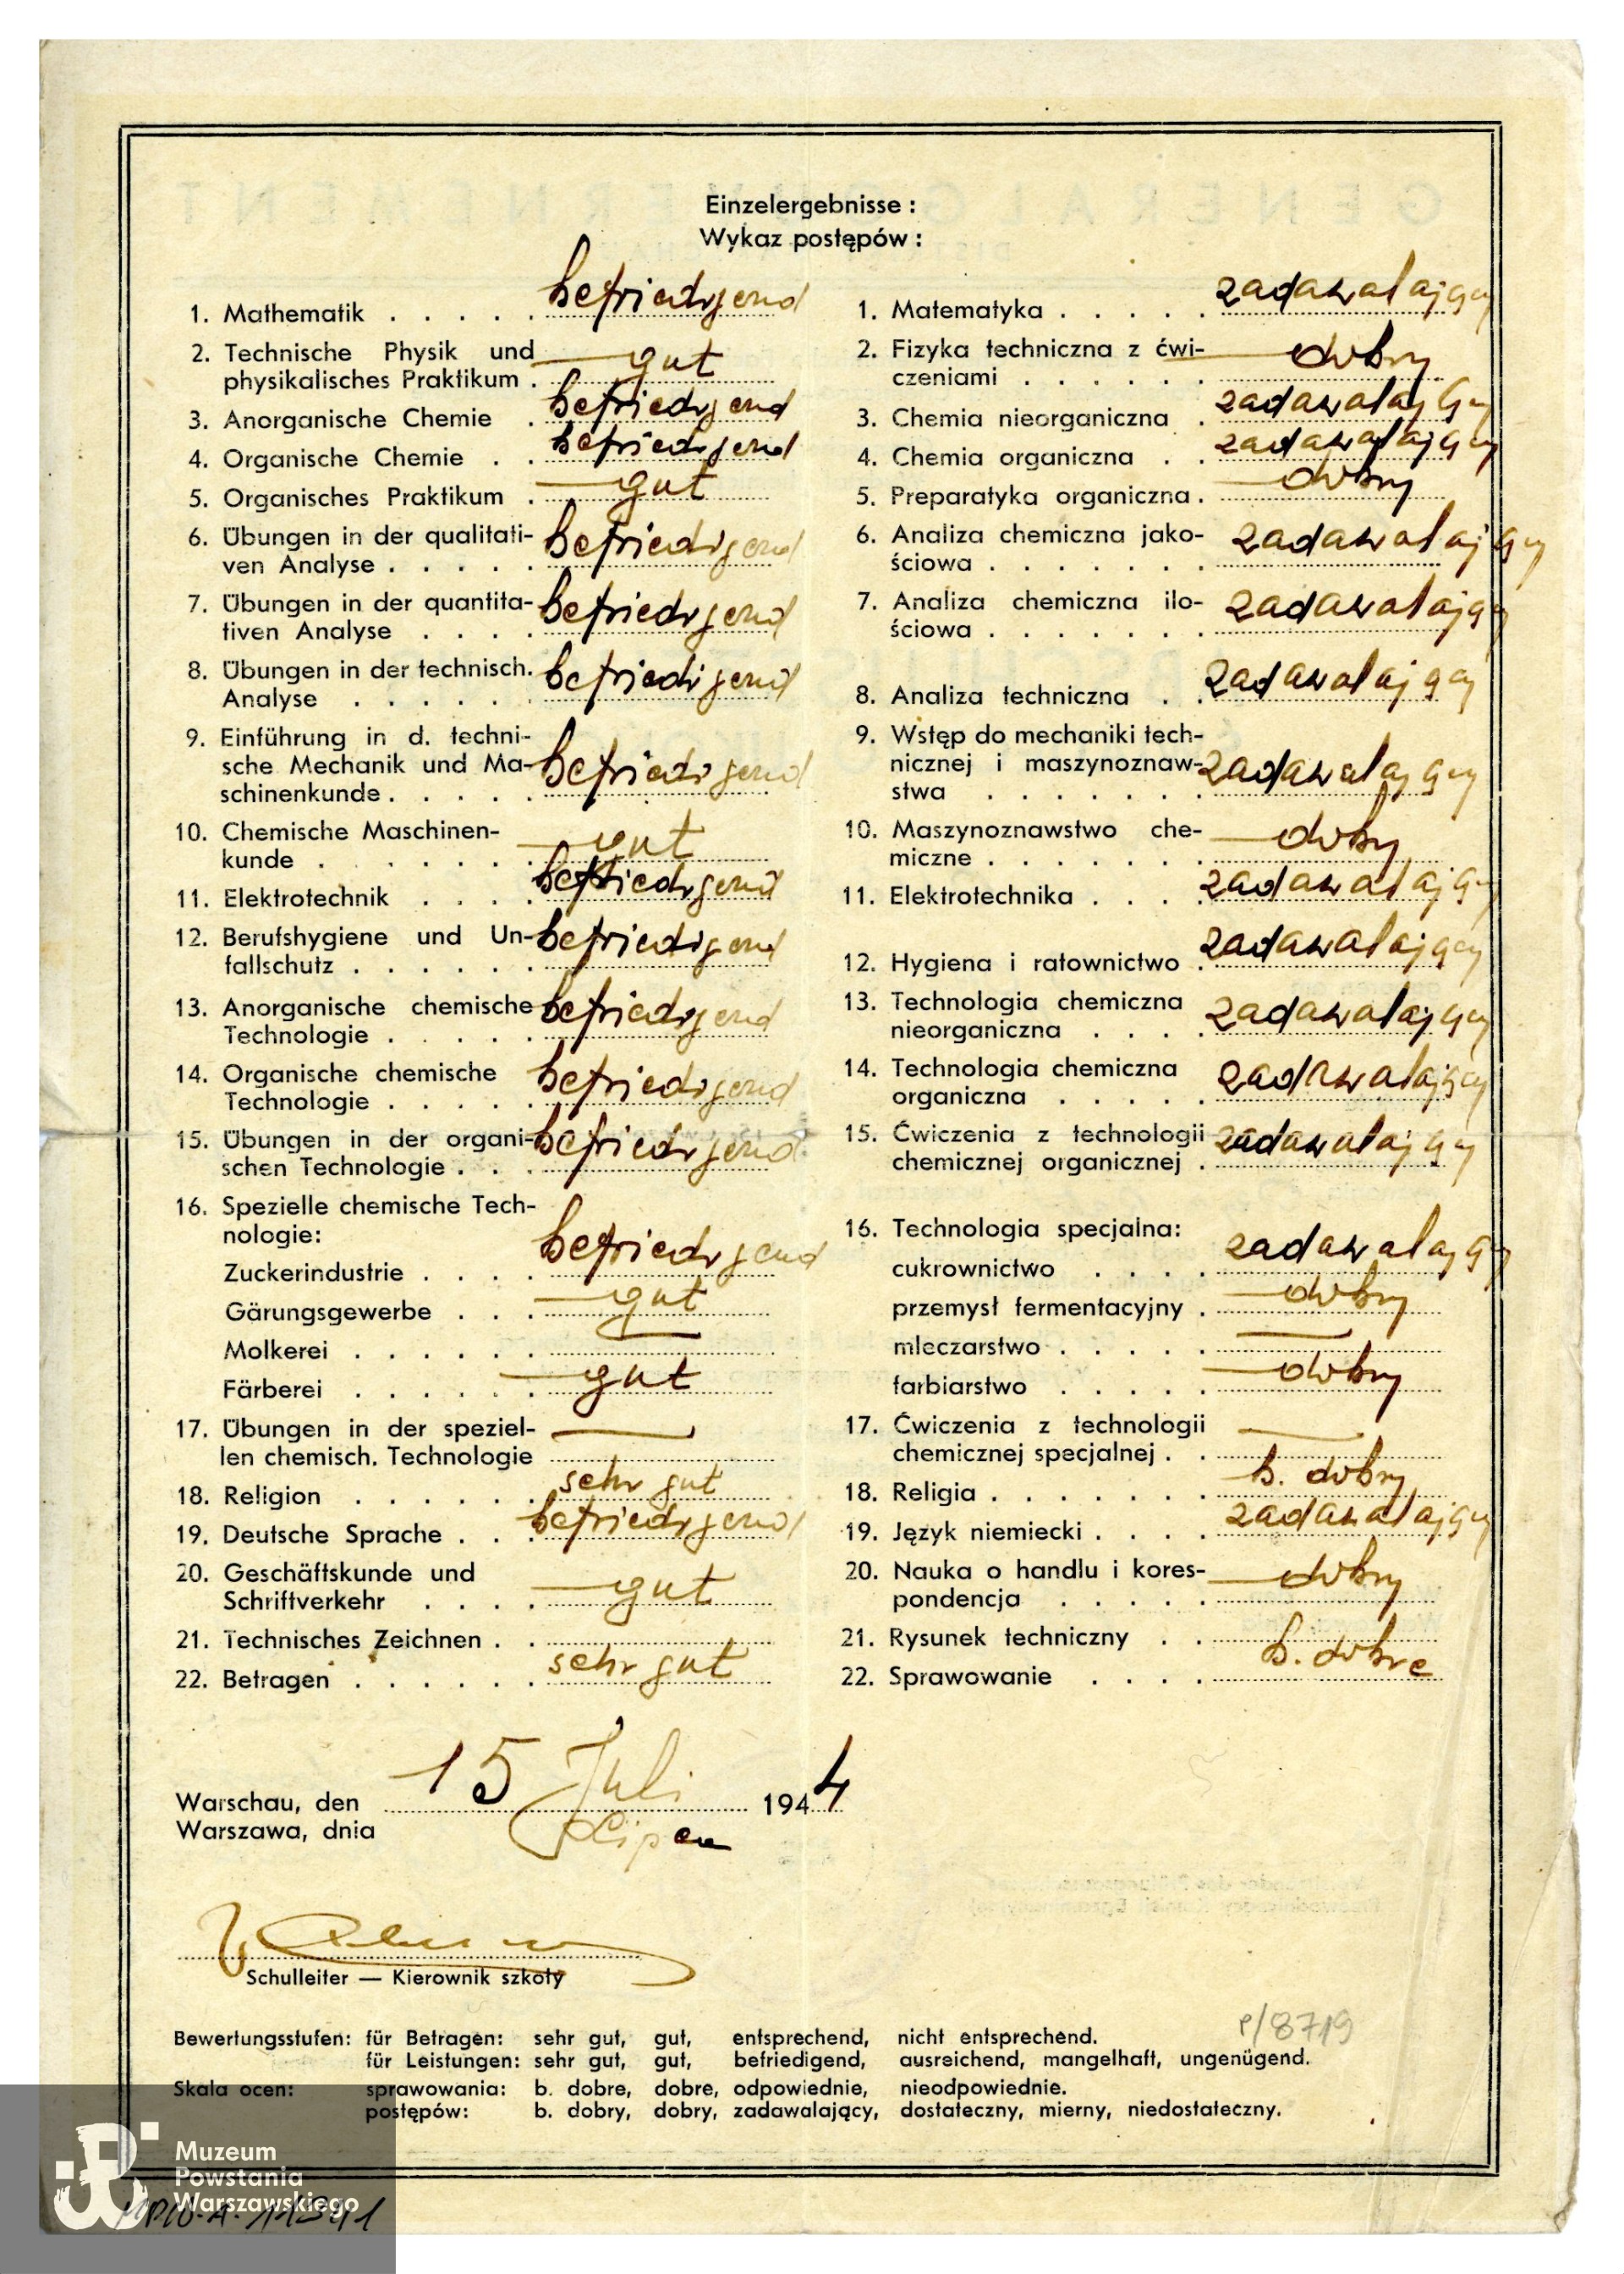 Einzelergebnisse :
Wykaz postępów :
1. Mathematik . . . . . befriedigend
2. Technische Physik und
physikalisches Praktikum . gut
3. Anorganische Chemie . befriedigend
4. Organische Chemie . . befriedigend
5. Organisches Praktikum . gut
6. Übungen in der qualitati-
ven Analyse . . . . . befriedigend
7. Übungen in der quantita-
tiven Analyse . . . . befriedigend
8. Übungen in der technisch.
Analyse . . . . . . befriedigend
9. Einführung in d. techni-
sche Mechanik und Ma-
schinenkunde . . . . . befriedigend
10. Chemische Maschinen-
kunde . . . . . . gut
11. Elektrotechnik . . . . befriedigend
12. Berufshygiene und Un-
fallschutz . . . . . . befriedigend
13. Anorganische chemische
Technologie . . . . . befriedigend
14. Organische chemische
Technologie . . . . . befriedigend
15. Übungen in der organi-
schen Technologie . . . befriedigend
16. Spezielle chemische Tech-
nologie:
Zuckerindustrie . . . . befriedigend
Gärungsgewerbe . . . gut
Molkerei . . . . . . —
Färberei . . . . . . gut
17. Übungen in der speziel-
len chemisch. Technologie —
18. Religion . . . . . . sehr gut
19. Deutsche Sprache . . . befriedigend
20. Geschäftskunde und
Schriftverkehr . . . . gut
21. Technisches Zeichnen . .
22. Betragen . . . . . . sehr gut
1. Matematyka . . . . . zadawalający
2. Fizyka techniczna z ćwi-
czeniami . . . . . . dobry
3. Chemia nieorganiczna . zadawalający
4. Chemia organiczna . . zadawalający
5. Preparatyka organiczna . dobry
6. Analiza chemiczna jako-
ściowa . . . . . . . zadawalający
7. Analiza chemiczna ilo-
ściowa . . . . . . . zadawalający
8. Analiza techniczna . . zadawalający
9. Wstęp do mechaniki tech-
nicznej i maszynoznaw-
stwa . . . . . . . zadawalający
10. Maszynoznawstwo che-
miczne . . . . . . . dobry
11. Elektrotechnika . . . . zadawalający
12. Hygiena i ratownictwo . zadawalający
13. Technologia chemiczna
nieorganiczna . . . . zadawalający
14. Technologia chemiczna
organiczna . . . . . zadawalający
15. Ćwiczenia z technologii
chemicznej organicznej . zadawalający
16. Technologia specjalna:
cukrownictwo . . . . zadawalający
przemysł fermentacyjny . dobry
mleczarstwo . . . . . —
farbiarstwo . . . . . dobry
17. Ćwiczenia z technologii
chemicznej specjalnej . . —
18. Religia . . . . . . . b. dobry
19. Język niemiecki . . . . zadawalający
20. Nauka o handlu i kores-
pondencja . . . . . dobry
21. Rysunek techniczny . .
22. Sprawowanie . . . . b. dobre
Warschau, den 15 Juli 1944
Warszawa, dnia
Schulleiter — Kierownik szkoły
P/8719
Bewertungsstufen: für Betragen: sehr gut, gut, entsprechend, nicht entsprechend.
für Leistungen: sehr gut, gut, befriedigend, ausreichend, mangelhaft, ungenügend.
Skala ocen: sprawowania: b. dobre, dobre, odpowiednie, nieodpowiednie.
postępów: b. dobry, dobry, zadawalający, dostateczny, mierny, niedostateczny.
Muzeum
Powstania
Warszawskiego